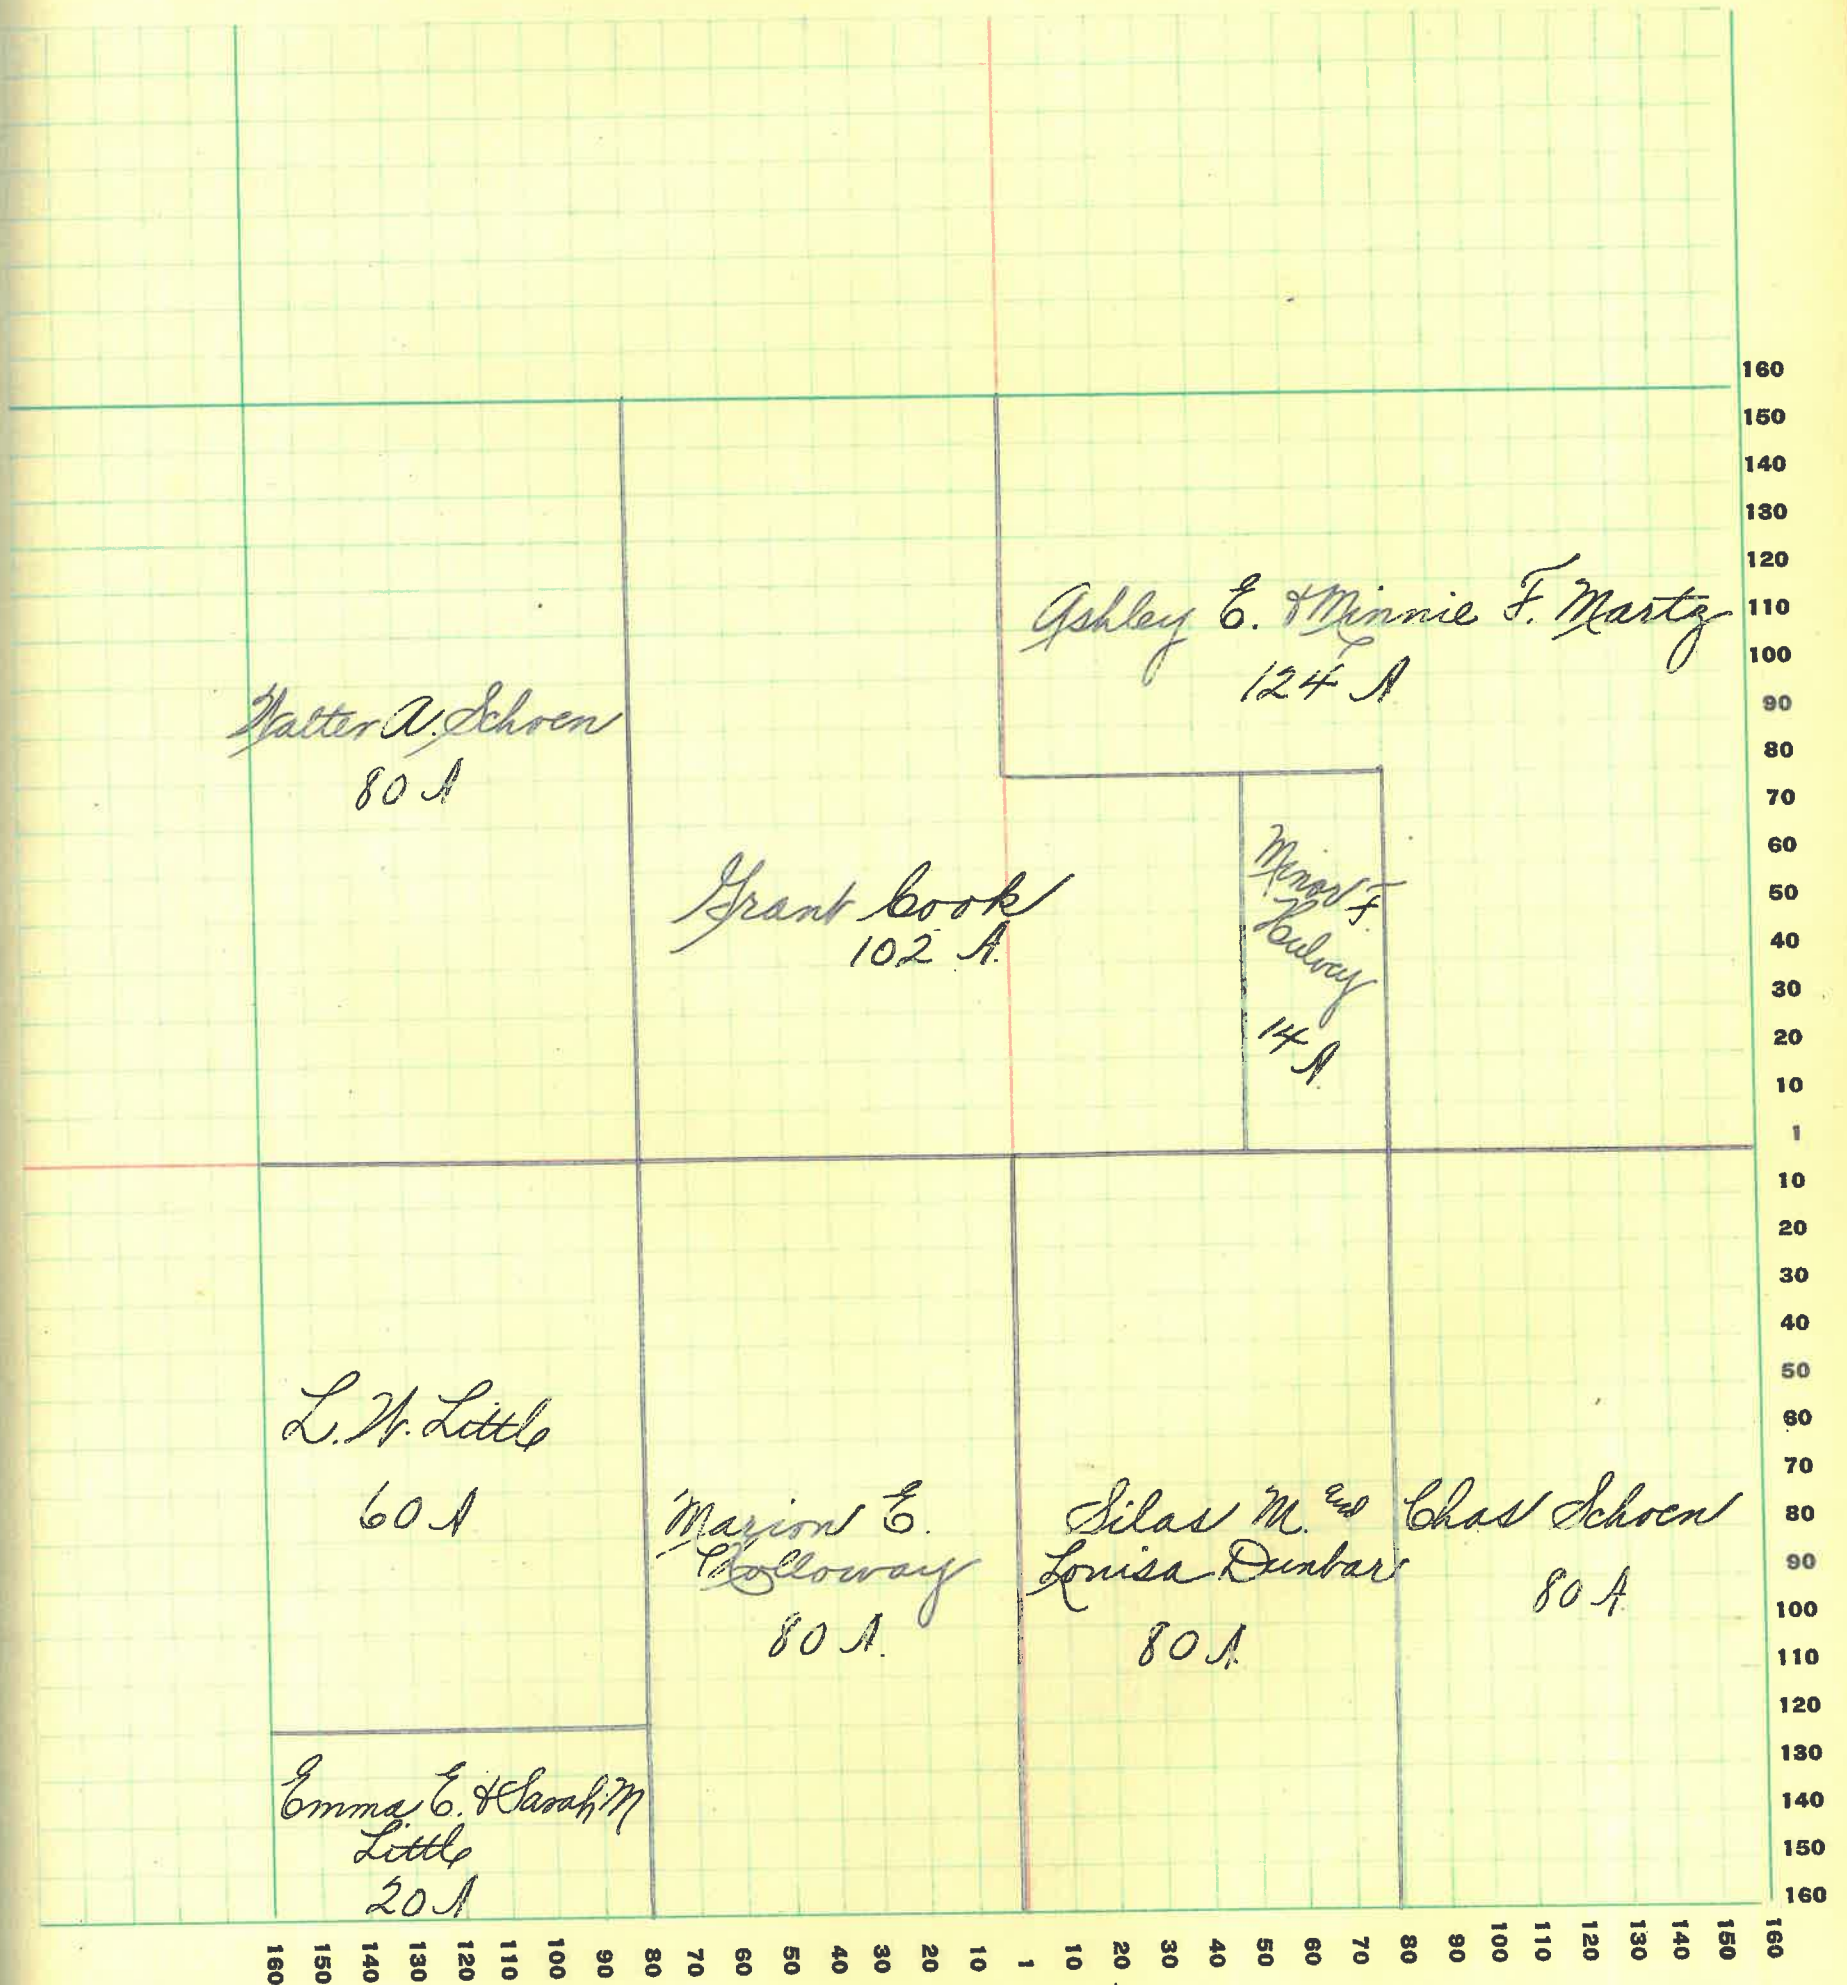 Ashley E. & Minnie F. Martz
124 A
Walter A. Schoen
80 A
Grant Cook
102 A.
Minor F.
14 A.
L. W. Little
60 A
Marion E.
Holloway
80 A.
Silas M. and
Louisa Dunbar
80 A.
Chas Schoen
80 A.
Emma E. & Sarah M
Little
20 A
160
150
140
130
120
110
100
90
80
70
60
50
40
30
20
10
1
10
20
30
40
50
60
70
80
90
100
110
120
130
140
150
160
160 150 140 130 120 110 100 90 80 70 60 50 40 30 20 10 1 10 20 30 40 50 60 70 80 90 100 110 120 130 140 150 160